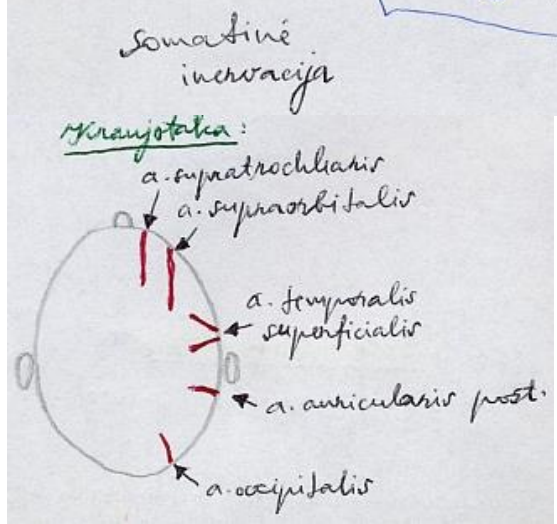 Somatinė
inervacija
Kraujotaka:
a. supratrochlearis
a. supraorbitalis
a. temporalis
superficialis
a. auricularis post.
a. occipitalis